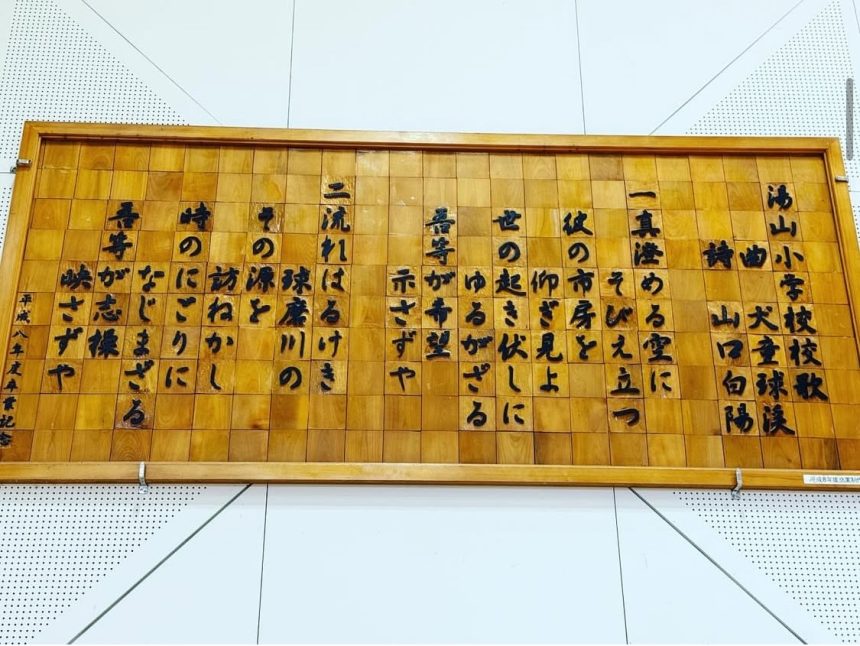 湯山小学校校歌
曲 犬童球渓
詩 山口白陽
一 真澄める空に
そびえ立つ
彼の市房を
仰ぎ見よ
世の起き伏しに
ゆるがざる
吾等が希望
示さずや
二 流れはるけき
球磨川の
その源を
訪ねかし
時のにごりに
なじまざる
吾等が志操
映さずや
平成八年度卒業記念